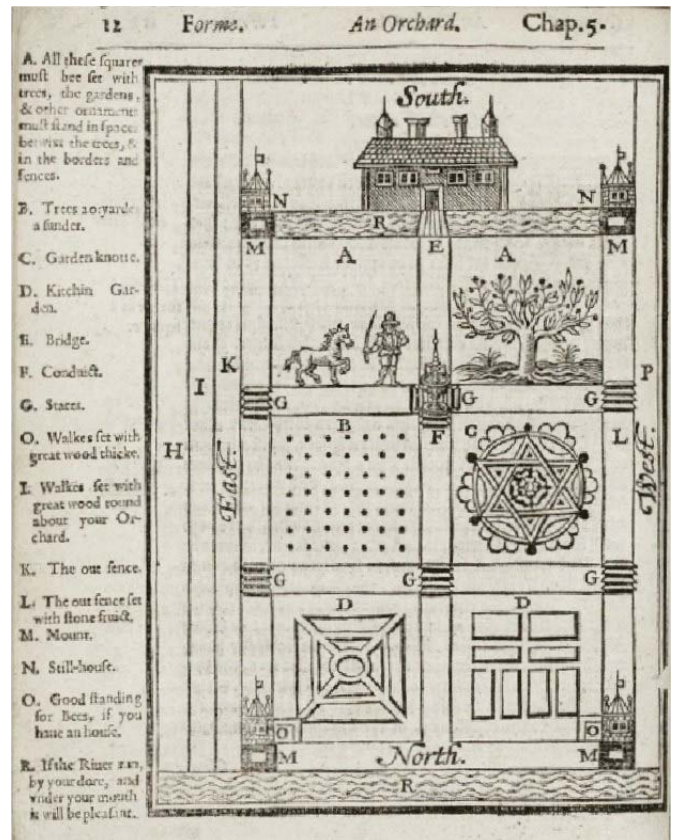 12 Forme. An Orchard. Chap. 5.
A. All theſe ſquares
muſt bee ſet with
trees, the gardens,
& other ornaments
muſt ſtand in ſpaces
betwixt the trees, &
in the borders and
fences.
B. Trees 20 yardes
a ſunder.
C. Garden knotte.
D. Kitchin Gar-
den.
E. Bridge.
F. Conduict.
G. Staires.
O. Walkes ſet with
great wood thicke.
I. Walkes ſet with
great wood round
about your Or-
chard.
K. The out fence.
L. The out fence ſet
with ſtone fruict.
M. Mount.
N. Still-houſe.
O. Good ſtanding
for Bees, if you
haue an houſe.
R. If the Riuer run,
by your dore, and
vnder your mount
it will be pleaſant.
South.
N N
R
M A E A M
K P
I
G G G
B F C L
H East. West.
G G G
D D
O O
M North. M
R